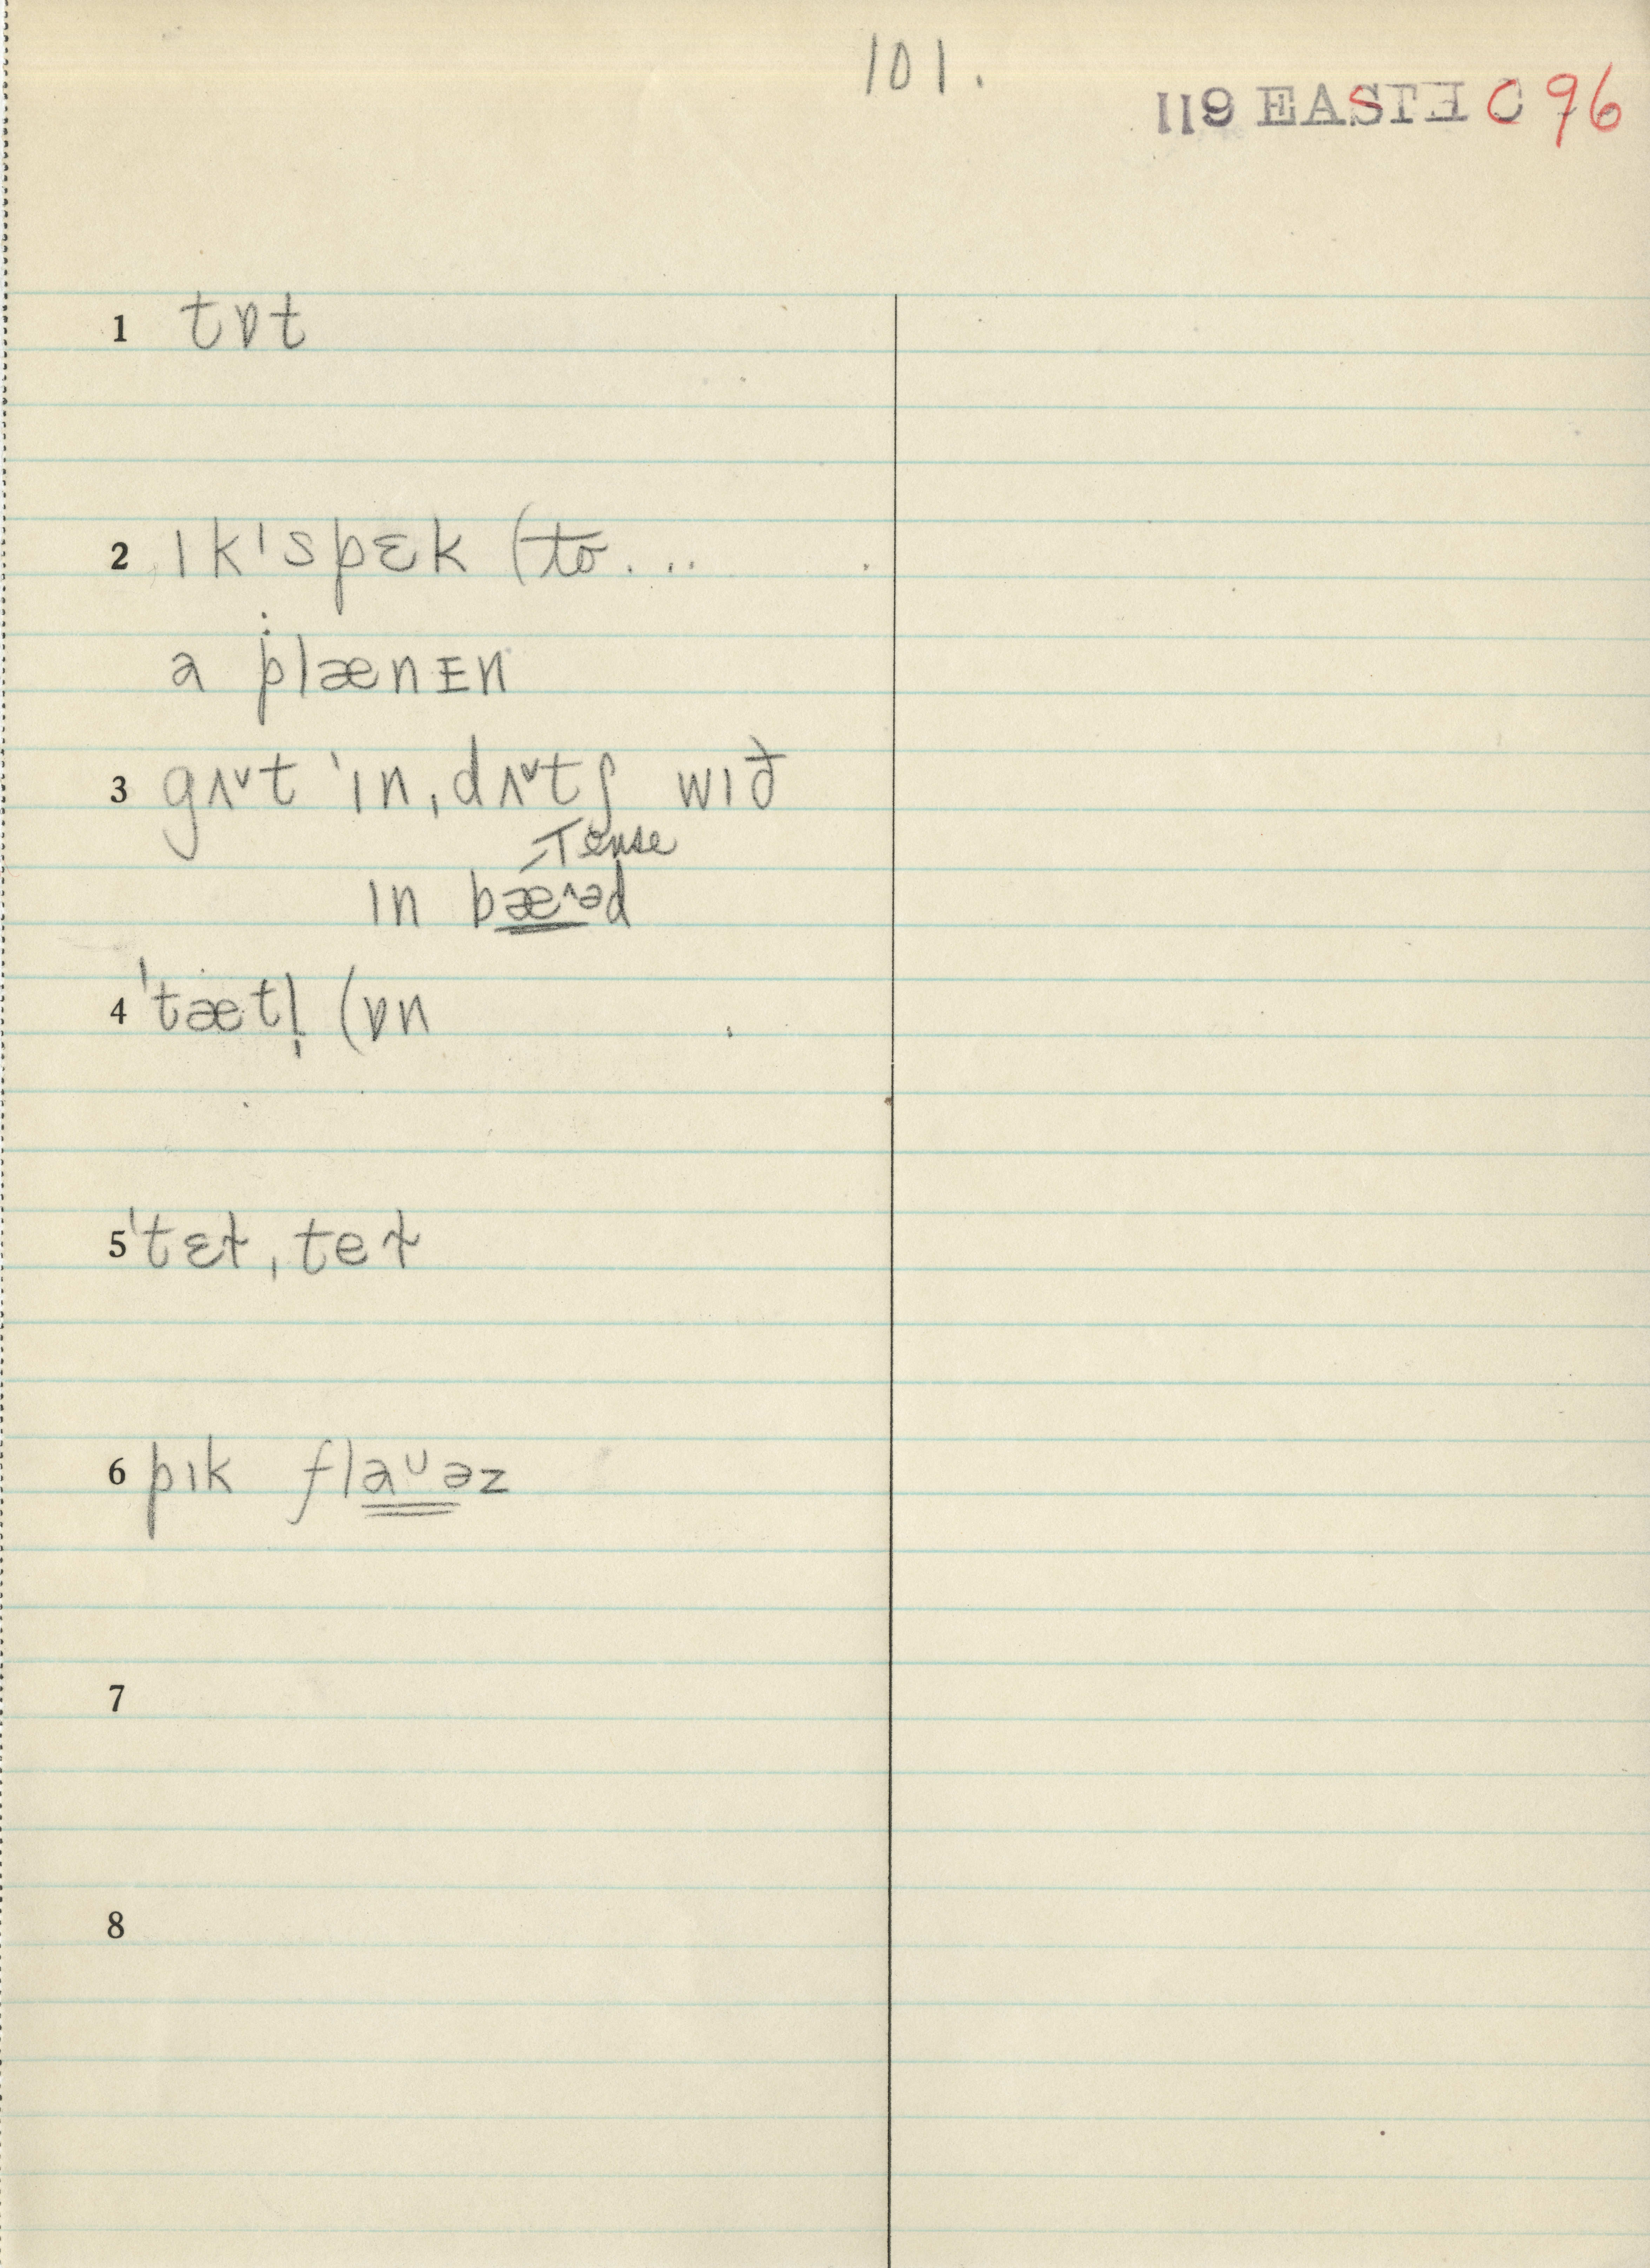 101.
119 EASTE C 96
1 tɒt
2 ɪk'spɛk (to...
a plænɪn
3 gʌᵛt 'ɪn, dʌᵛtʃ wɪð
Tense
ɪn bæ^əd
4 'tætl̩ (ɒn
5 'tɛɫ, teɫ
6 pɪk flaᶸəz
7
8